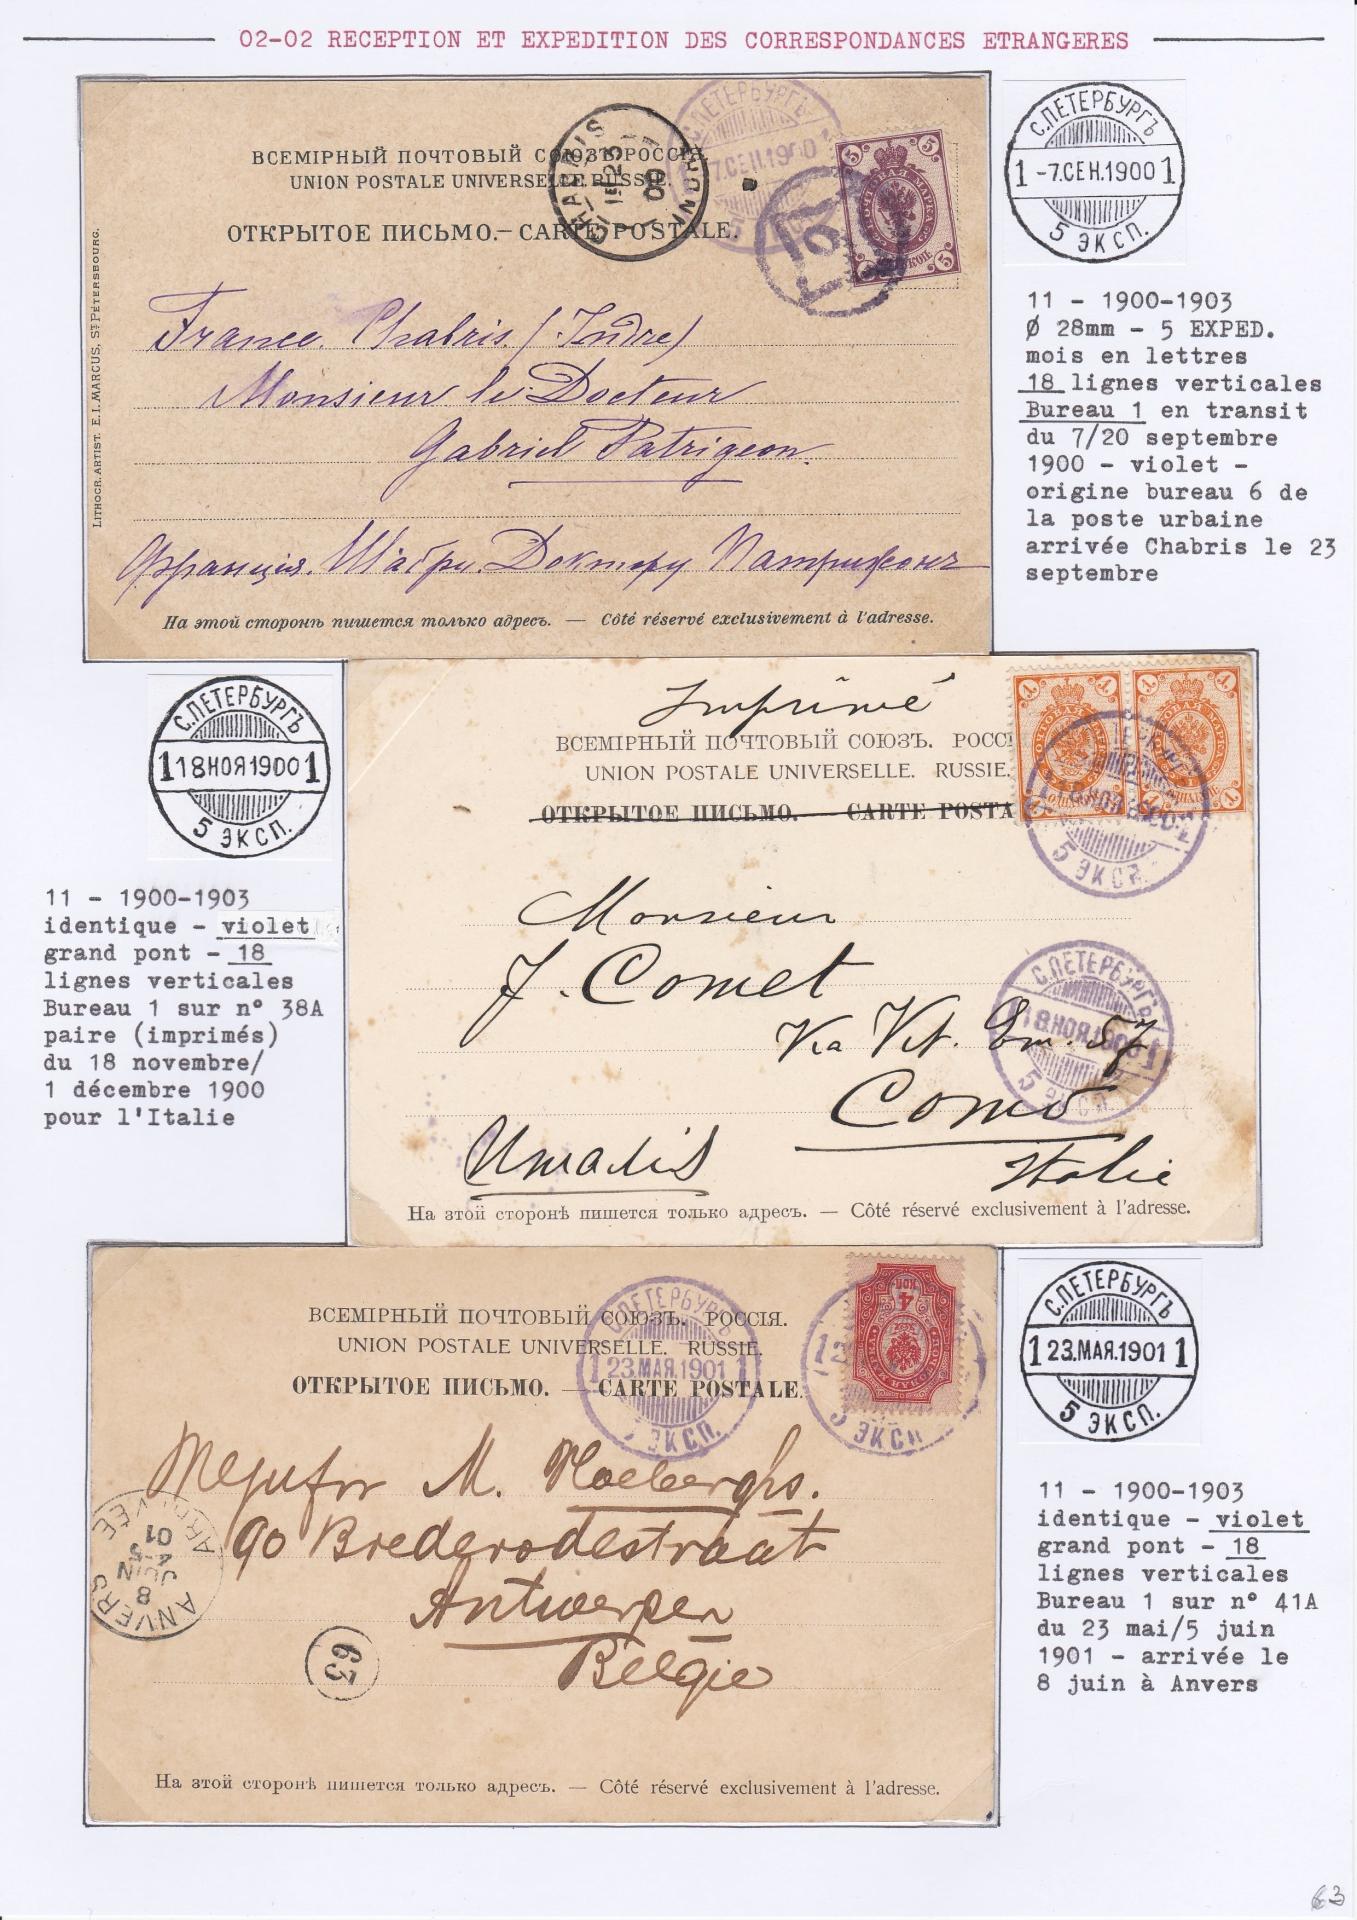 02-02 RECEPTION ET EXPEDITION DES CORRESPONDANCES ETRANGERES
ВСЕМІРНЫЙ ПОЧТОВЫЙ СОЮЗЪ. РОССІЯ.
UNION POSTALE UNIVERSELLE. RUSSIE.
ОТКРЫТОЕ ПИСЬМО. — CARTE POSTALE.
CHABRIS
INDRE
23
00
С.ПЕТЕРБУРГЪ
1 -7.СЕН.1900 1
5
5
5
5
ПОЧТОВАЯ МАРКА
КОП.
LITHOGR. ARTIST. E.I. MARCUS, ST. PÉTERSBOURG.
France. Chabris. (Indre)
Monsieur le Docteur
Gabriel Patrigeon.
Франція. Шабри. Доктору Патрижонъ
На этой сторонѣ пишется только адресъ. — Côté réservé exclusivement à l'adresse.
С.ПЕТЕРБУРГЪ
1 -7.СЕН.1900 1
5 ЭКСП.
11 - 1900-1903
Ø 28mm - 5 EXPED.
mois en lettres
18 lignes verticales
Bureau 1 en transit
du 7/20 septembre
1900 - violet -
origine bureau 6 de
la poste urbaine
arrivée Chabris le 23
septembre
С.ПЕТЕРБУРГЪ
1 18НОЯ1900 1
5 ЭКСП.
11 - 1900-1903
identique - violet
grand pont - 18
lignes verticales
Bureau 1 sur n° 38A
paire (imprimés)
du 18 novembre/
1 décembre 1900
pour l'Italie
Imprimé
ВСЕМІРНЫЙ ПОЧТОВЫЙ СОЮЗЪ. РОССІ
UNION POSTALE UNIVERSELLE. RUSSIE.
ОТКРЫТОЕ ПИСЬМО. — CARTE POSTA
5 ЭКСП.
Monsieur
J. Comet
Via Vit. Em. 57
Como
Italie
Италія
С.ПЕТЕРБУРГЪ
18.НОЯ.1900 1
5 ЭКСП.
На этой сторонѣ пишется только адресъ. — Côté réservé exclusivement à l'adresse.
ВСЕМІРНЫЙ ПОЧТОВЫЙ СОЮЗЪ. РОССІЯ.
UNION POSTALE UNIVERSELLE. RUSSIE.
ОТКРЫТОЕ ПИСЬМО. — CARTE POSTALE.
С.ПЕТЕРБУРГЪ
1 23.МАЯ.1901 1
ЭКСП.
4
КОП.
ПОЧТОВАЯ МАРКА
5 ЭКСП
Mejufor M.
90 Brederodestraat
Antwerpen
Belgie
ANVERS
ARRIVÉE
8
JUIN
4-5
01
63
На этой сторонѣ пишется только адресъ. — Côté réservé exclusivement à l'adresse.
С.ПЕТЕРБУРГЪ
1 23.МАЯ.1901 1
5 ЭКСП.
11 - 1900-1903
identique - violet
grand pont - 18
lignes verticales
Bureau 1 sur n° 41A
du 23 mai/5 juin
1901 - arrivée le
8 juin à Anvers
63